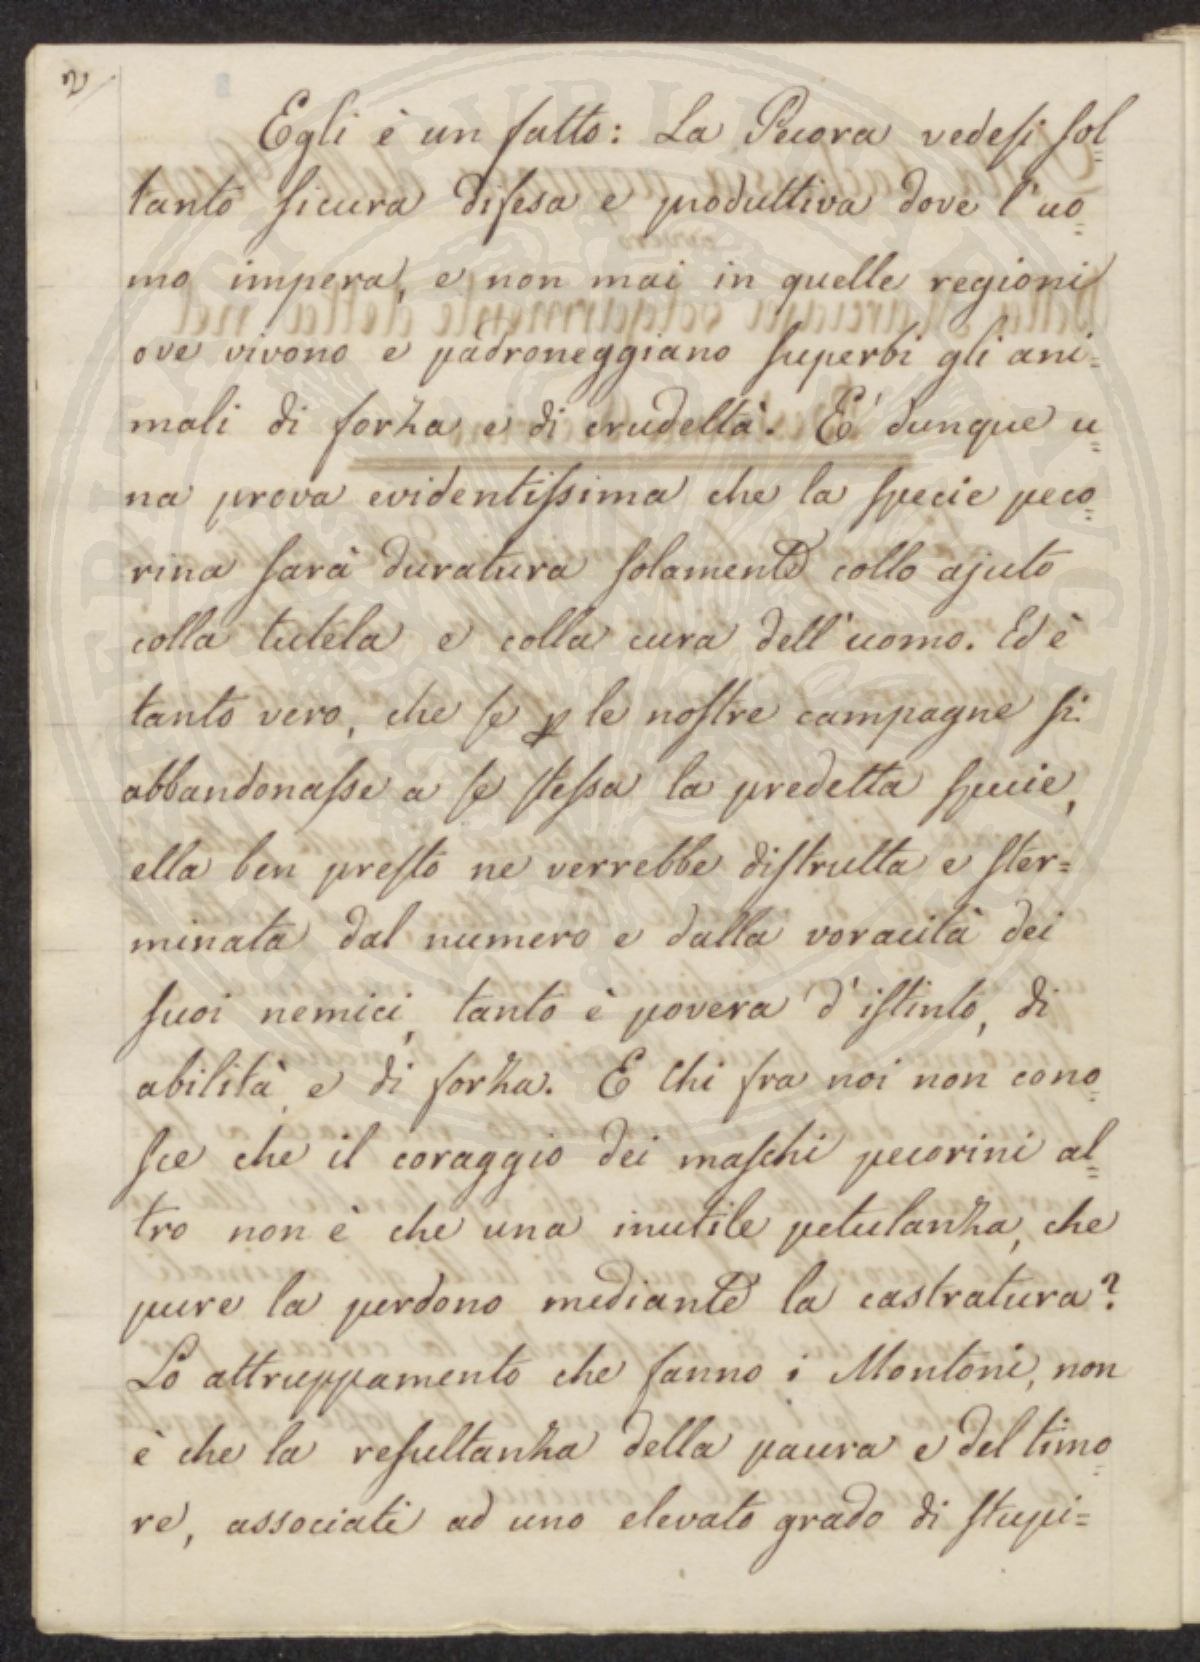 2
Egli è un fatto: La Pecora vedesi sol=
tanto sicura difesa e produttiva dove l'uo=
mo impera, e non mai in quelle regioni
ove vivono e padroneggiano superbi gli ani=
mali di forza e di crudeltà. E' dunque u=
na prova evidentissima che la specie peco=
rina sarà duratura solamente collo ajuto
colla tutela e colla cura dell'uomo. Ed è
tanto vero, che se p le nostre campagne si
abbandonasse a se stessa la predetta specie,
ella ben presto ne verrebbe distrutta e ster=
minata dal numero e dalla voracità dei
suoi nemici, tanto è povera d'istinto, di
abilità, e di forza. E chi fra noi non cono=
sce che il coraggio dei maschi pecorini al=
tro non è che una inutile petulanza, che
pure la perdono mediante la castratura?
Lo attruppamento che fanno i Montoni, non
è che la resultanza della paura e del timo=
re, associati ad uno elevato grado di stupi=